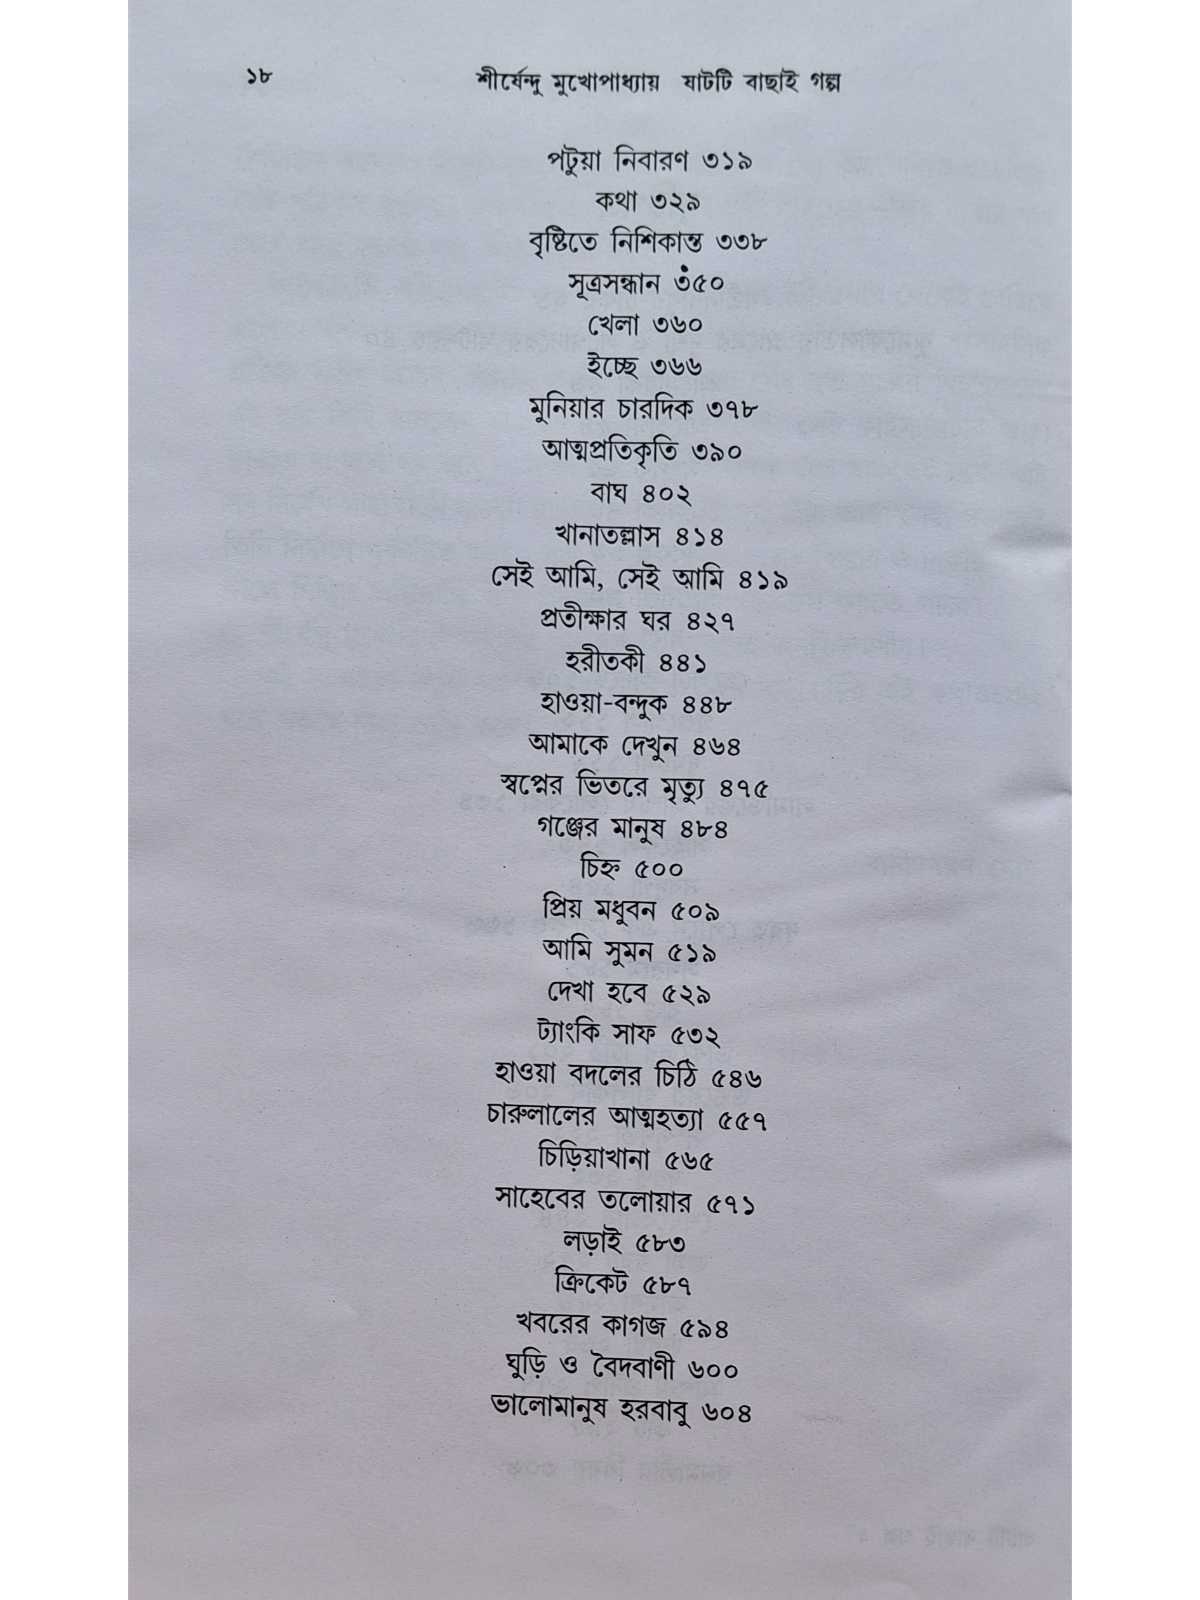 ১৮ শীর্ষেন্দু মুখোপাধ্যায় ষাটটি বাছাই গল্প
পটুয়া নিবারণ ৩১৯
কথা ৩২৯
বৃষ্টিতে নিশিকান্ত ৩৩৮
সূত্রসন্ধান ৩৫০
খেলা ৩৬০
ইচ্ছে ৩৬৬
মুনিয়ার চারদিক ৩৭৮
আত্মপ্রতিকৃতি ৩৯০
বাঘ ৪০২
খানাতল্লাস ৪১৪
সেই আমি, সেই আমি ৪১৯
প্রতীক্ষার ঘর ৪২৭
হরীতকী ৪৪১
হাওয়া-বন্দুক ৪৪৮
আমাকে দেখুন ৪৬৪
স্বপ্নের ভিতরে মৃত্যু ৪৭৫
গঞ্জের মানুষ ৪৮৪
চিহ্ন ৫০০
প্রিয় মধুবন ৫০৯
আমি সুমন ৫১৯
দেখা হবে ৫২৯
ট্যাংকি সাফ ৫৩২
হাওয়া বদলের চিঠি ৫৪৬
চারুলালের আত্মহত্যা ৫৫৭
চিড়িয়াখানা ৫৬৫
সাহেবের তলোয়ার ৫৭১
লড়াই ৫৮৩
ক্রিকেট ৫৮৭
খবরের কাগজ ৫৯৪
ঘুড়ি ও বৈদবাণী ৬০০
ভালোমানুষ হরবাবু ৬০৪